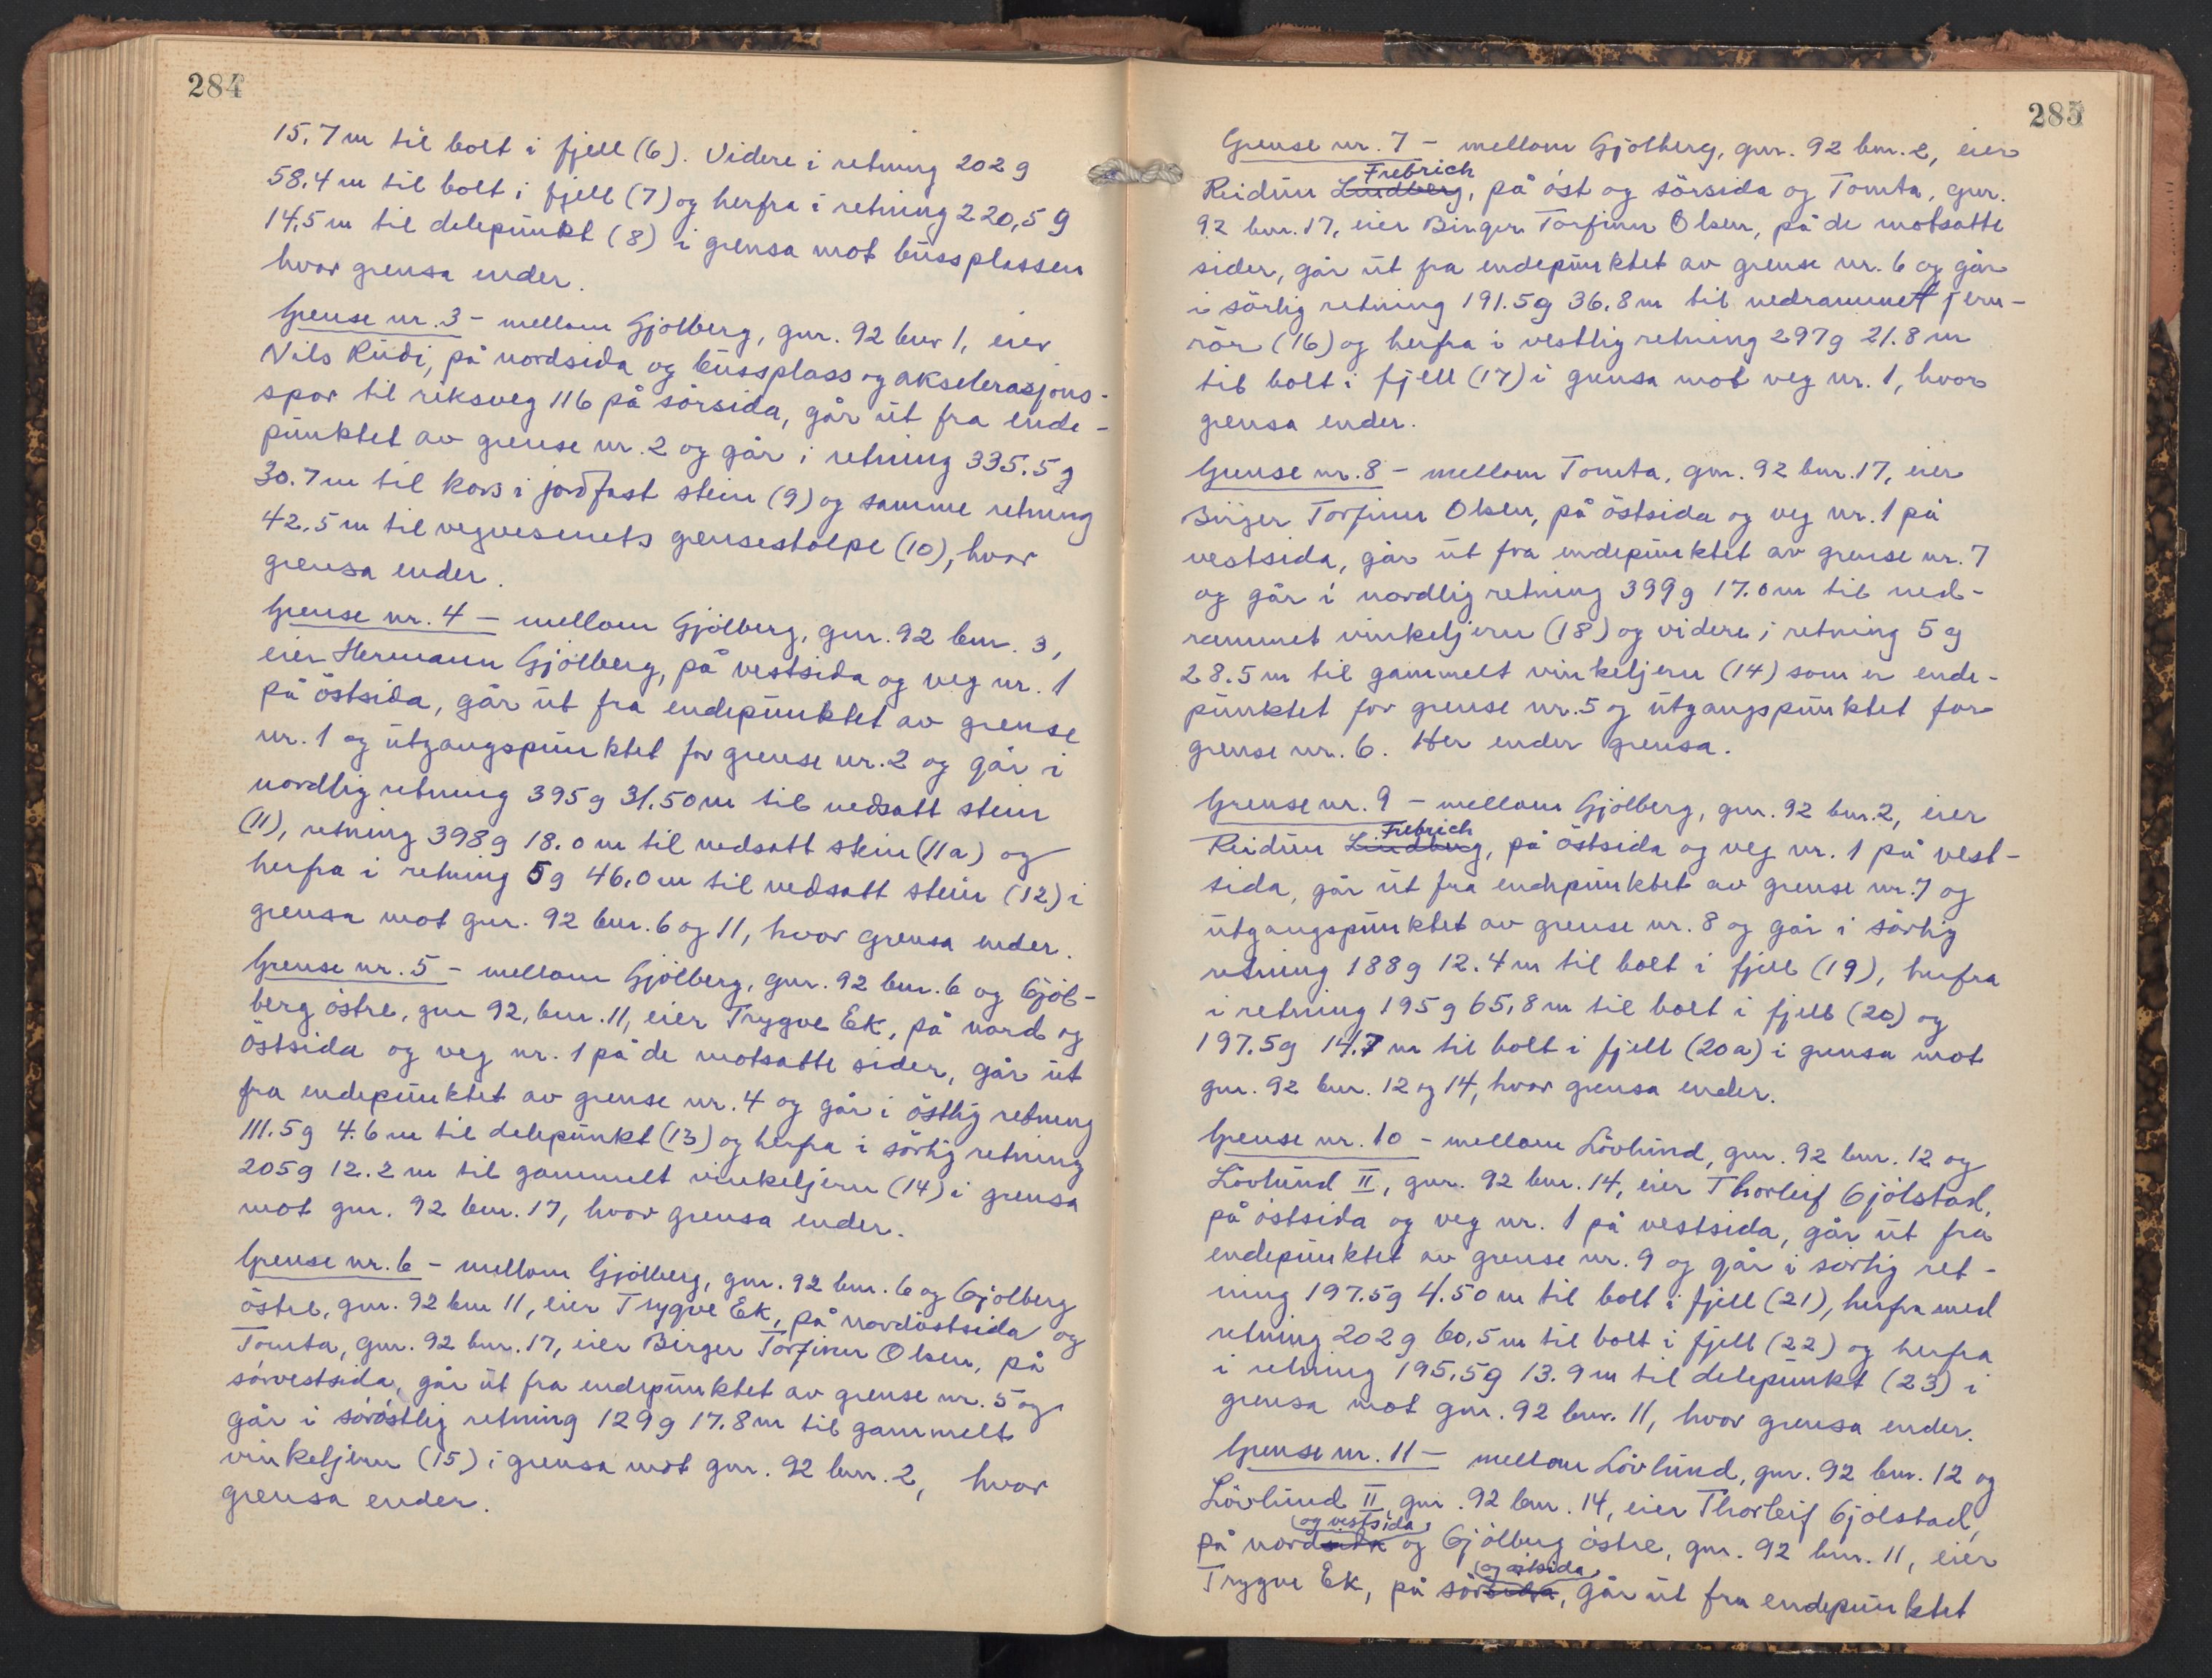 284
15.7 m til bolt i fjell (6). Videre i retning 202 g
58.4 m til bolt i fjell (7) og herfra i retning 220,5 g
14.5 m til delepunkt (8) i grensa mot bussplassen
hvor grensa ender.
Grense nr. 3 - mellom Gjölberg, gnr. 92 bnr 1, eier
Nils Rudi, på nordsida og bussplass og akselerasjons-
spor til riksveg 116 på sörsida, går ut fra ende-
punktet av grense nr. 2 og går i retning 335.5 g
30.7 m til kors i jordfast stein (9) og samme retning
42.5 m til vegvesenets grensestolpe (10), hvor
grensa ender.
Grense nr. 4 - mellom Gjölberg, gnr. 92 bnr. 3,
eier Hermann Gjölberg, på vestsida og veg nr. 1
på östsida, går ut fra endepunktet av grense
nr. 1 og utgangspunktet for grense nr. 2 og går i
nordlig retning 395 g 31.50 m til nedsatt stein
(11), retning 398 g 18.0 m til nedsatt stein (11a) og
herfra i retning 5 g 46.0 m til nedsatt stein (12) i
grensa mot gnr. 92 bnr. 6 og 11, hvor grensa ender.
Grense nr. 5 - mellom Gjölberg, gnr. 92 bnr. 6 og Gjöl-
berg östre, gnr 92, bnr. 11, eier Trygve Ek, på nord og
östsida og veg nr. 1 på de motsatte sider, går ut
fra endepunktet av grense nr. 4 og går i östlig retning
111.5 g 4.6 m til delepunkt (13) og herfra i sörlig retning
205 g 12.2 m til gammelt vinkeljern (14) i grensa
mot gnr. 92 bnr. 17, hvor grensa ender.
Grense nr. 6 - mellom Gjölberg, gnr. 92 bnr. 6 og Gjölberg
östre, gnr. 92 bnr 11, eier Trygve Ek, på nordöstsida og
Tomta, gnr. 92 bnr. 17, eier Birger Torfinn Olsen, på
sörvestsida, går ut fra endepunktet av grense nr. 5 og
går i söröstlig retning 129 g 17.8 m til gammelt
vinkeljern (15) i grensa mot gnr. 92 bnr. 2, hvor
grensa ender.
285
Grense nr. 7 - mellom Gjölberg, gnr. 92 bnr. 2, eier
Frebrich
Reidun Lindberg, på öst og sörsida og Tomta, gnr.
92 bnr. 17, eier Birger Torfinn Olsen, på de motsatte
sider, går ut fra endepunktet av grense nr. 6 og går
i sörlig retning 191.5 g 36.8 m til nedrammet jern-
rör (16) og herfra i vestlig retning 297 g 21.8 m
til bolt i fjell (17) i grensa mot veg nr. 1, hvor
grensa ender.
Grense nr. 8 - mellom Tomta, gnr. 92 bnr. 17, eier
Birger Torfinn Olsen, på östsida og veg nr. 1 på
vestsida, går ut fra endepunktet av grense nr. 7
og går i nordlig retning 399 g 17.0 m til ned-
rammet vinkeljern (18) og videre i retning 5 g
28.5 m til gammelt vinkeljern (14) som er ende-
punktet for grense nr. 5 og utgangspunktet for
grense nr. 6. Her ender grensa.
Grense nr. 9 - mellom Gjölberg, gnr. 92 bnr. 2, eier
Frebrich
Reidun Lindberg, på östsida og veg nr. 1 på vest-
sida, går ut fra endepunktet av grense nr. 7 og
utgangspunktet av grense nr. 8 og går i sörlig
retning 188 g 12.4 m til bolt i fjell (19), herfra
i retning 195 g 65.8 m til bolt i fjell (20) og
197.5 g 14.7 m til bolt i fjell (20a) i grensa mot
gnr. 92 bnr. 12 og 14, hvor grensa ender.
Grense nr. 10 - mellom Lövlund, gnr. 92 bnr. 12 og
Lövlund II, gnr. 92 bnr. 14, eier Thorleif Gjölstad,
på östsida og veg nr. 1 på vestsida, går ut fra
endepunktet av grense nr. 9 og går i sörlig ret-
ning 197.5 g 4.50 m til bolt i fjell (21), herfra med
retning 202 g 60,5 m til bolt i fjell (22) og herfra
i retning 195,5 g 13.9 m til delepunkt (23) i
grensa mot gnr. 92 bnr. 11, hvor grensa ender.
Grense nr. 11 - mellom Lövlund, gnr. 92 bnr. 12 og
Lövlund II, gnr. 92 bnr. 14, eier Thorleif Gjölstad,
og vestsida
på nordsida og Gjölberg östre, gnr. 92 bnr. 11, eier
og östsida
Trygve Ek, på sörsida, går ut fra endepunktet